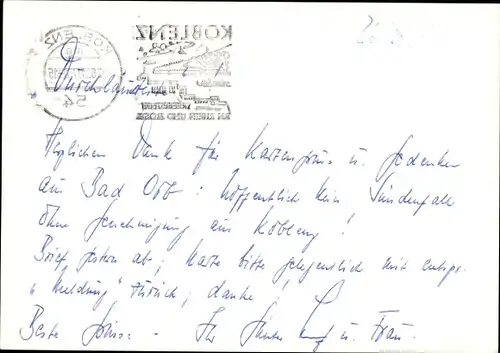 KOBLENZ
KOBLENZ
54
AN RHEIN UND MOSEL
Herzlichen Dank für Kartengruss u. Gedenken
aus Bad Orb: hoffentlich kein Sündenfall
ohne Genehmigung aus Koblenz!
Brief gestern ab; Karte bitte gelegentlich mit entspr.
"Meldung" zurück; danke!
Beste Grüsse - Ihr Günter u. Frau.